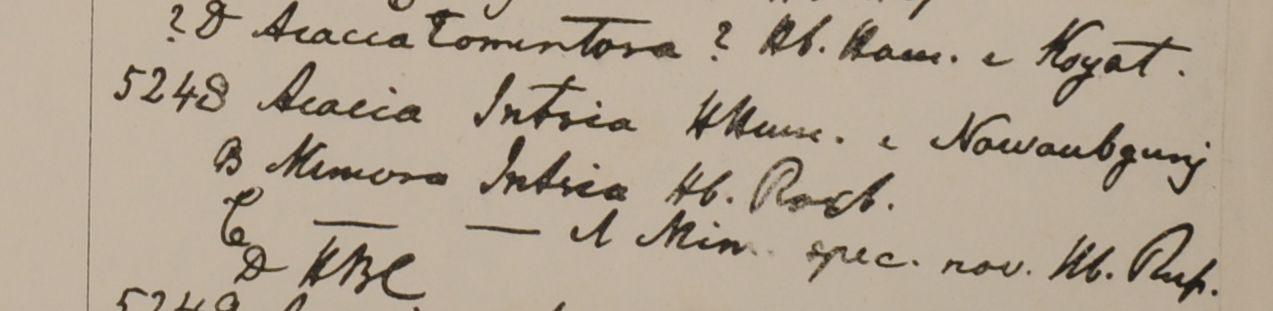 ? D Acacia Tomentosa ? Hb. Ham. e Kyat.
5248 Acacia Intsia HHam. e Nawaubgunj
B Mimosa Intsia Hb. Roxb.
C — — Λ Mim. spec. nov. Hb. Rup.
D HBC
5249